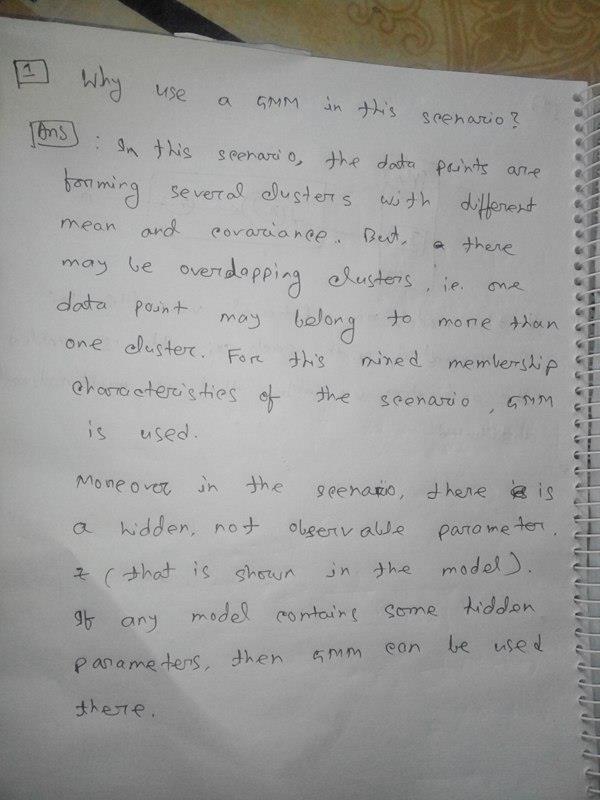 1 Why use a GMM in this scenario?
Ans : In this scenario, the data points are
forming several clusters with different
mean and covariance. But, there
may be overlapping clusters, i.e. one
data point may belong to more than
one cluster. For this mixed membership
characteristics of the scenario, GMM
is used.
Moreover in the scenario, there is
a hidden, not observable parameter.
z (that is shown in the model).
If any model contains some hidden
parameters, then GMM can be used
there.